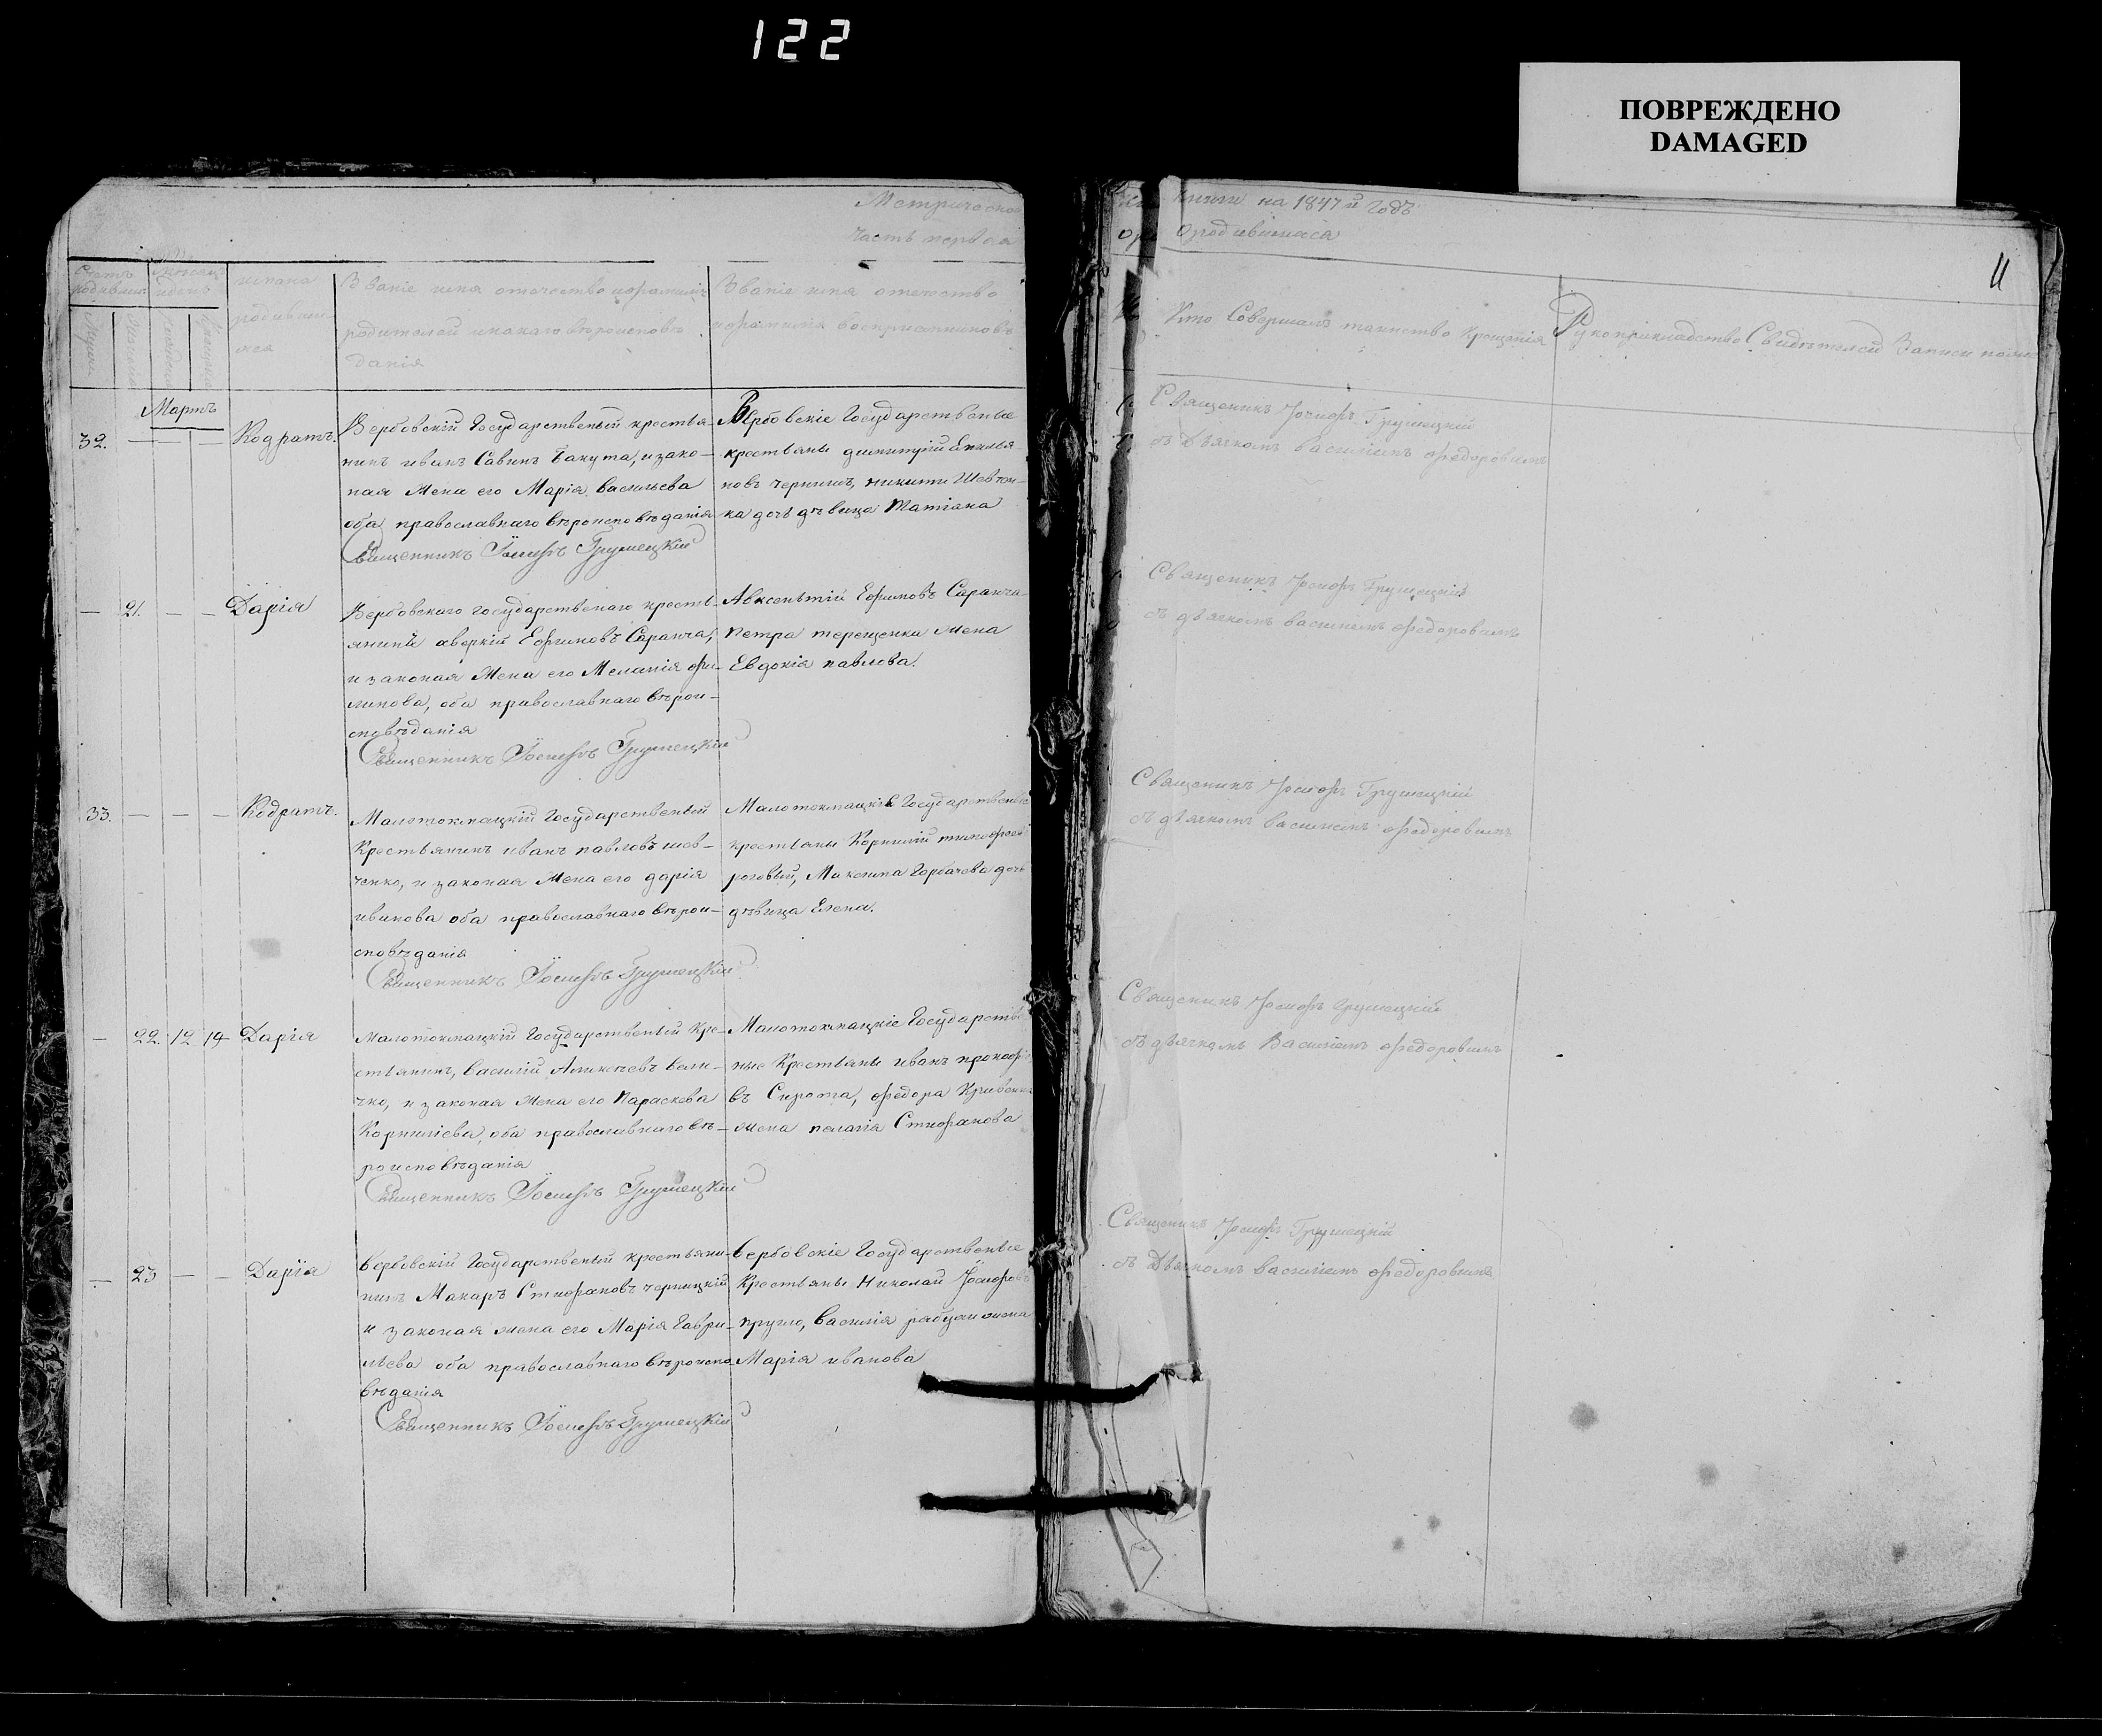 122
ПОВРЕЖДЕНО
DAMAGED
Метрической
Часть первая
книги на 1847й годъ
ородившихся
11
Счетъ родивших.
Мѣсяцъ и день
имена
родивши-
хся
Званіе имя отечество ифамилія
родителей икакаго вѣроисповѣ
данія
Званіе имя отечество
ифамилія воспріемниковъ
Кто Совершалъ таинство крещенія
Рукоприкладство Свидѣтелей Записи
Мартъ
32. — — —
Кодратъ.
Вербовскій Государственый крестья-
нинъ иванъ Савинъ Бакута, изако-
ная жена его Марія васильева
оба православнаго вѣроисповѣданія
Священникъ Іосифъ Грушецкій
Вербовскіе Государственые
крестьяны димитрій Емилья
новъ чернишъ, никиты Шевчен-
ка дочь дѣвица Татіана
Священикъ Іосифъ Грушецкій
съ дьячкомъ василіемъ федоровымъ
— 21. — —
Дарія
Вербовскаго государственаго кресть-
янинъ аверкій Ефимовъ Саранча,
и законая жена его Меланія фи-
липова, оба православнаго вѣрои-
сповѣданія
Священникъ Іосифъ Грушецкій
Авксентій Ефимовъ Саранча
Петра терещенка жена
Евдокія павлова.
Священикъ Іосифъ Грушецкій
съ дьячкомъ василіемъ федоровымъ
33. — — —
Кодратъ.
Малотокмацкій Государственый
Крестьянинъ иванъ павловъ шев-
ченко, и законая жена его дарія
иванова оба православнаго вѣрои-
сповѣданія
Священникъ Іосифъ Грушецкій
Малотокмацкіе Государственые
крестьяны Корнилій тимофеевъ
роговый, Максима Горбачева дочь
дѣвица Елена.
Священикъ Іосифъ Грушецкій
съ дьячкомъ василіемъ федоровымъ
— 22. 12 14
Дарія
Малотокмацкій Государственый Кре-
стьянинъ, василій Аликсѣевъ вели-
чко, и законая жена его Параскева
Корнилієва, оба православнаго вѣ-
роисповѣданія
Священникъ Іосифъ Грушецкій
Малотокмацкіе Государстве-
ные Крестьяны иванъ прокофіе
въ Сирота, федора Кривенка
жена пелагія Стифанова
Священикъ Іосифъ Грушецкій
съ дьячкомъ Василіемъ федоровымъ
— 23 — —
Дарія
вербовскій Государственый крестьяни-
нъ Макаръ Стифановъ черницкій
и законая жена его Марія Гаври-
льева оба православнаго вѣроиспо-
вѣданія
Священникъ Іосифъ Грушецкій
вербовскіе Государственые
Крестьяны Николай Іосифовъ
кругло, василія рабухи жена
Марія иванова
Священикъ Іосифъ Грушецкій
съ Дьячкомъ василіемъ федоровымъ